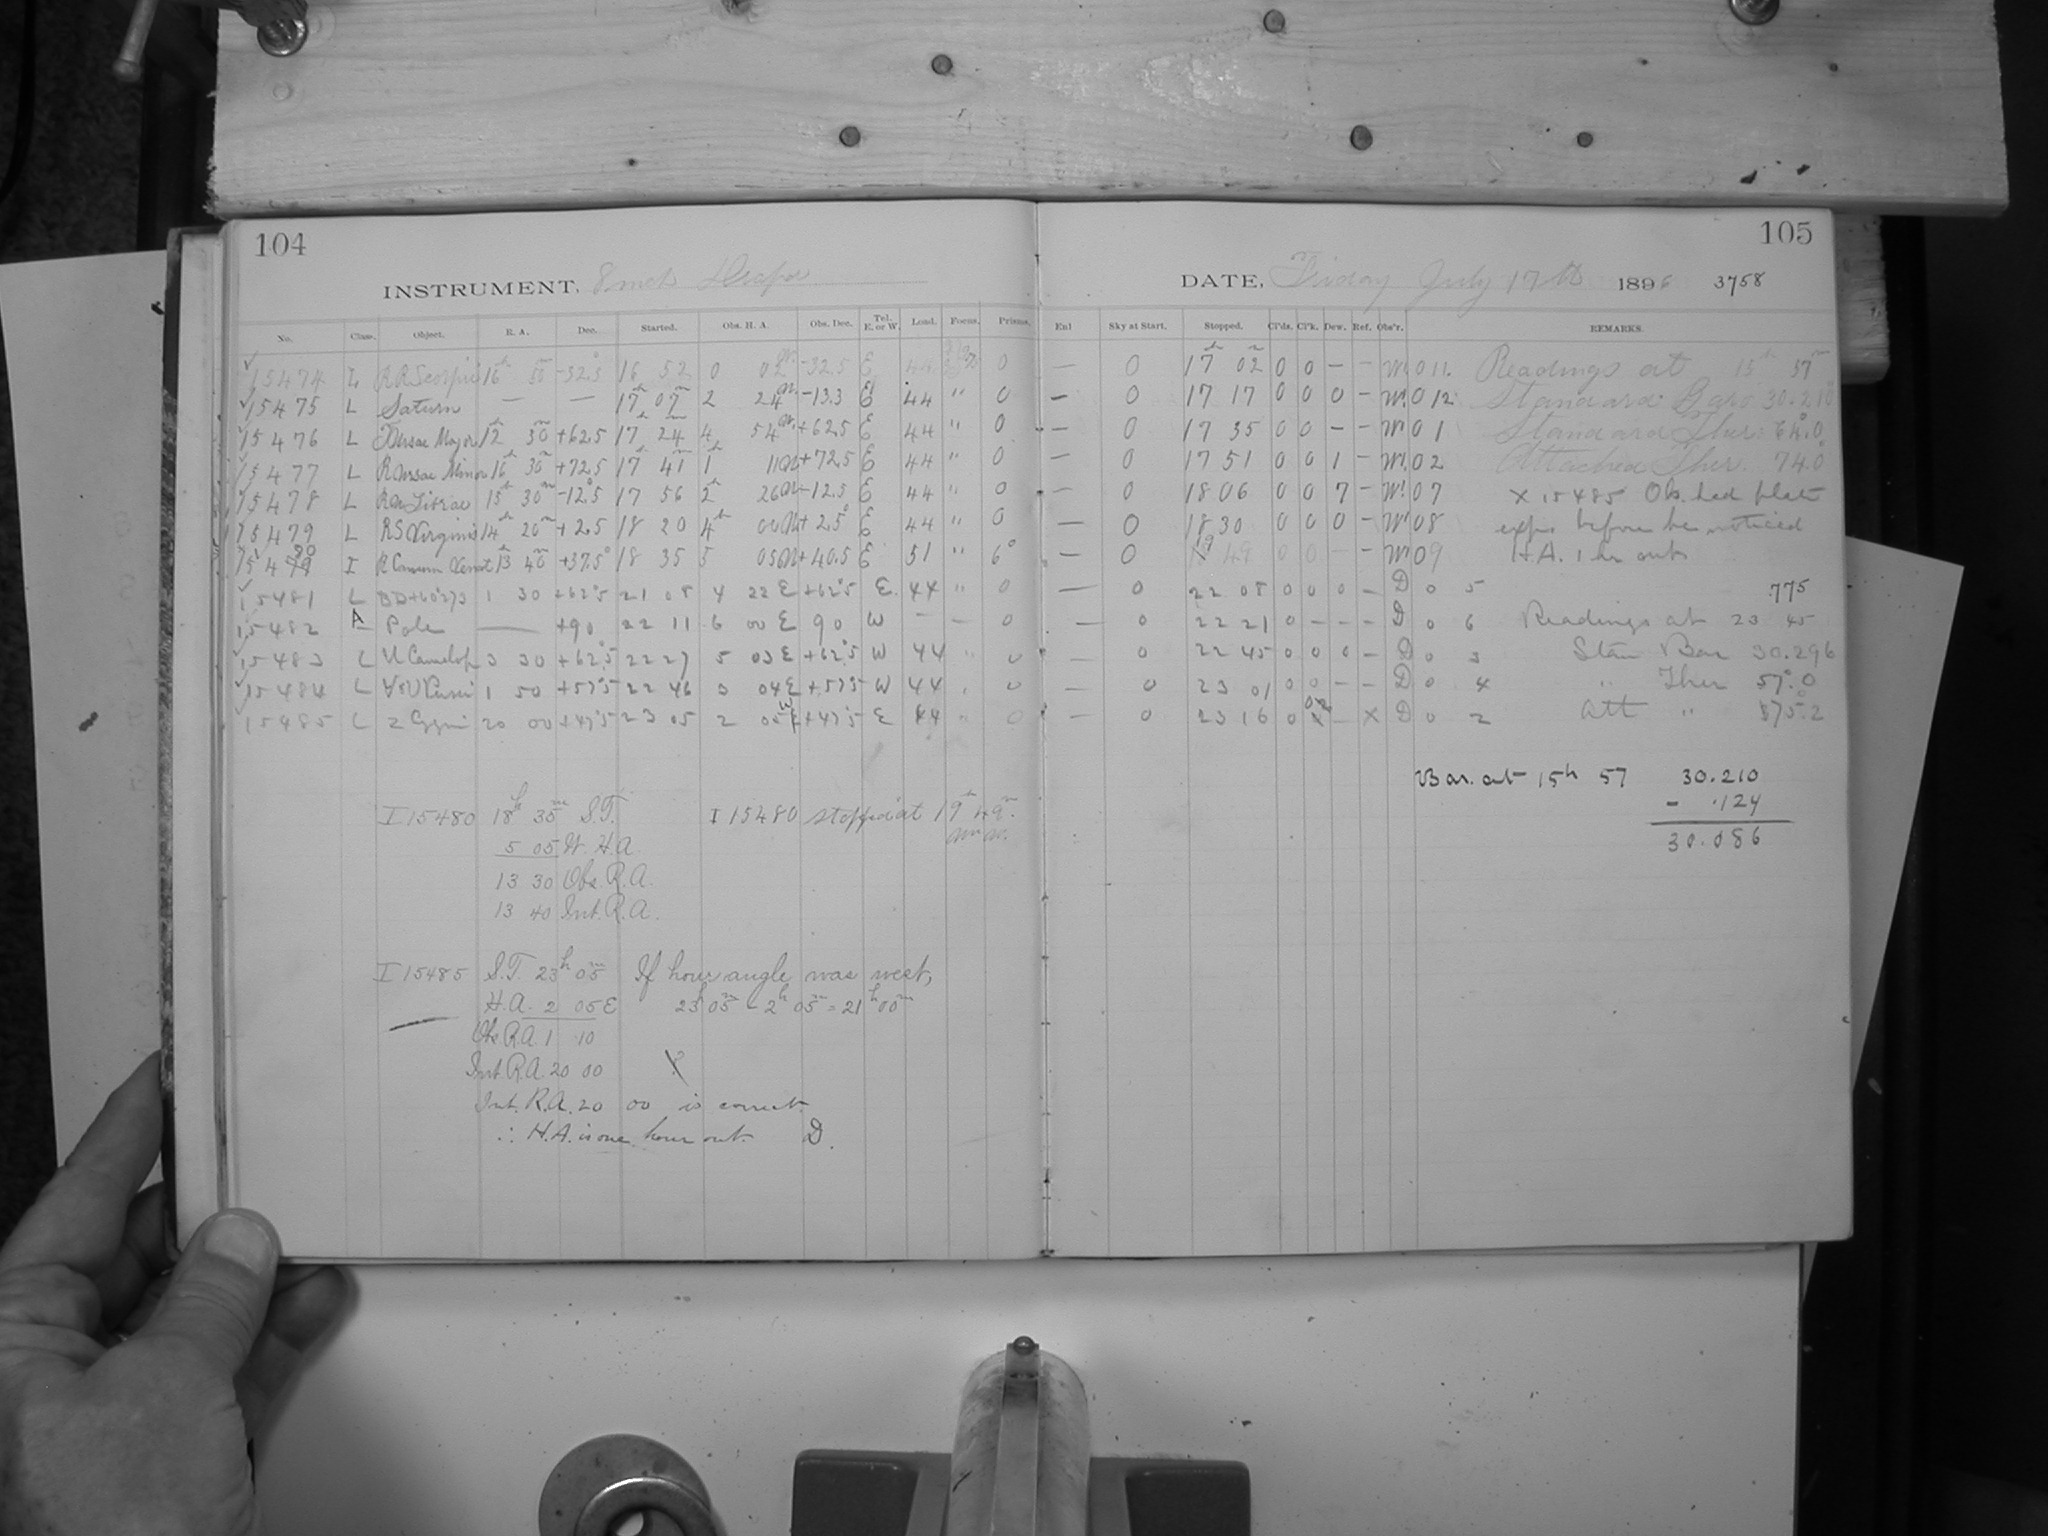 104
INSTRUMENT, 8 inch Draper
No. Class. Object. R. A. Dec. Started. Obs. H. A. Obs. Dec. Tel. E. or W. Lend. Focus. Prisms.
15474 L RR Scorpii 16h 50m -32.5 16 52 0 02 W. -32.5 E 44 0
15475 L Saturn — — 17h 07m 2 24 W. -13.3 E 44 " 0
15476 L T Ursae Major 12h 30m +62.5 17h 24m 4 54 W. +62.5 E 44 " 0
15477 L R Ursae Minor 16h 30m +72.5 17h 41 1h 11 W +72.5 E 44 " 0
15478 L Librae 15h 30m -12.5 17 56 2h 26 W -12.5 E 44 " 0
15479 L RS Virginis 14h 20m +2.5 18 20 4h 00 W +2.5 E 44 " 0
15480 I R Canum Venat 13h 40m +37.5° 18 35 5 05 W +40.5 E 51 " 6°
15481 L BD+60°273 1 30 +62°5 21 08 4 22 E +62°5 E 44 " 0
15482 A Pole — +90 22 11 6 00 E 90 W — — 0
15483 L U Camelop 3 30 +62°5 22 27 5 03 E +62°5 W 44 " 0
15484 L V & U Persei 1 50 +57°5 22 46 3 04 E +57°5 W 44 " 0
15485 L Z Cygni 20 00 +47°5 23 05 2 05 W +47°5 E 44 " 0
I 15480 18h 35m S.T. I 15480 stopped at 19h 49m.
5 05 W. H.A.
13 30 Obs. R.A.
13 40 Int. R.A.
I 15485 S.T. 23h 05m If hour angle was west,
H.A. 2 05 E 23h 05m - 2h 05m = 21h 00m
Obs R.A. 1 10
Int. R.A. 20 00 ?
Int. R.A. 20 00 is correct.
∴ H.A. is one hour out. D.
105
DATE, Friday July 17th 1896 3758
Enl Sky at Start. Stopped. Cl'ds. Cl'k. Dew. Ref. Obs'r. REMARKS.
— 0 17h 02m 0 0 — — W. 0 11. Readings at 15h 57m
— 0 17 17 0 0 0 — W. 0 12 Standard Baro 30.210
— 0 17 35 0 0 — — W. 0 1 Standard Ther. 64.0
— 0 17 51 0 0 1 — W. 0 2 Attached Ther. 74.0
— 0 18 06 0 0 7 — W. 0 7 X 15485 Obs. had plate
— 0 18 30 0 0 0 — W. 0 8 expos before he noticed
— 0 19 49 0 0 — — W. 0 9 H.A. 1 hr out
— 0 22 08 0 0 0 — D 0 5 .775
— 0 22 21 0 — — — D 0 6 Readings at 23 45
— 0 22 45 0 0 0 — D 0 3 Stan Bar 30.296
— 0 23 01 0 0 — — D 0 4 " Ther 57°.0
— 0 23 16 0 — X D 0 2 Att " 75°.2
Bar. at 15h 57 30.210
- .124
30.086